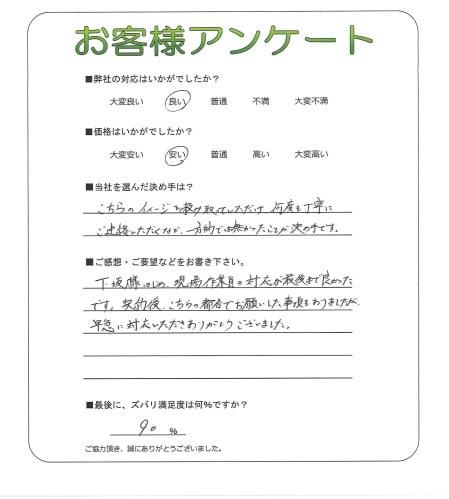 お客様アンケート
■弊社の対応はいかがでしたか?
大変良い 良い 普通 不満 大変不満
■価格はいかがでしたか?
大変安い 安い 普通 高い 大変高い
■当社を選んだ決め手は?
こちらのイメージを受け取っていただけ 何度も丁寧に
ご連絡いただくなど、一方的では無かったことが決め手です。
■ご感想・ご要望などをお書き下さい。
下坂様はじめ、現場作業員の対応が最後まで良かった
です。契約後、こちらの都合でお願いした事項もありましたが、
早急に対応いただきありがとうございました。
■最後に、ズバリ満足度は何%ですか?
90 %
ご協力頂き、誠にありがとうございました。